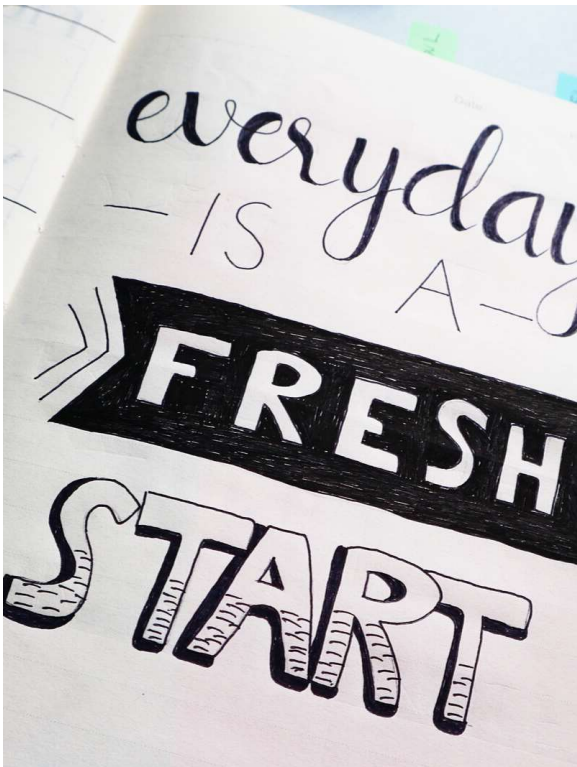 everyday
- IS A -
FRESH
START